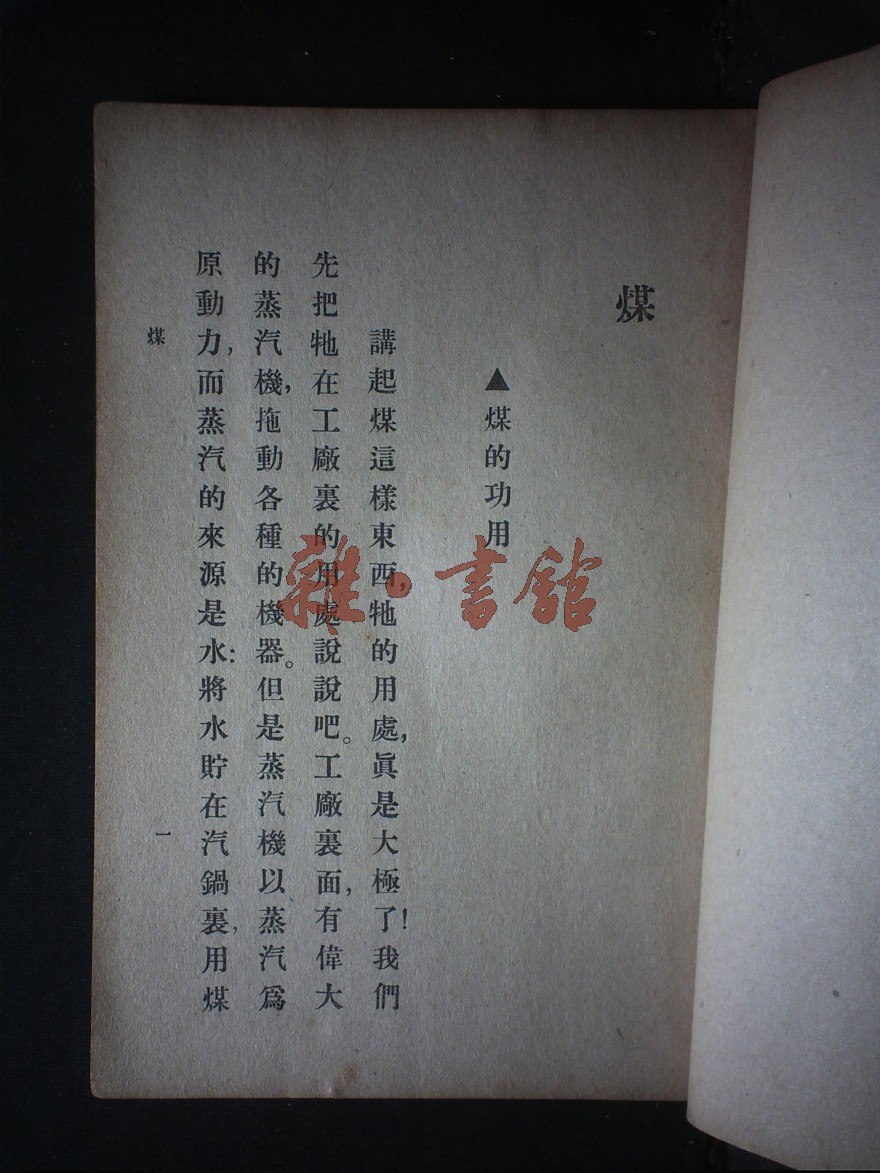 煤
▲煤的功用
講起煤這樣東西，牠的用處，眞是大極了！我們
先把牠在工廠裏的用處說說吧。工廠裏面，有偉大
的蒸汽機，拖動各種的機器。但是蒸汽機以蒸汽爲
原動力，而蒸汽的來源是水：將水貯在汽鍋裏，用煤
煤
一
雜·書館